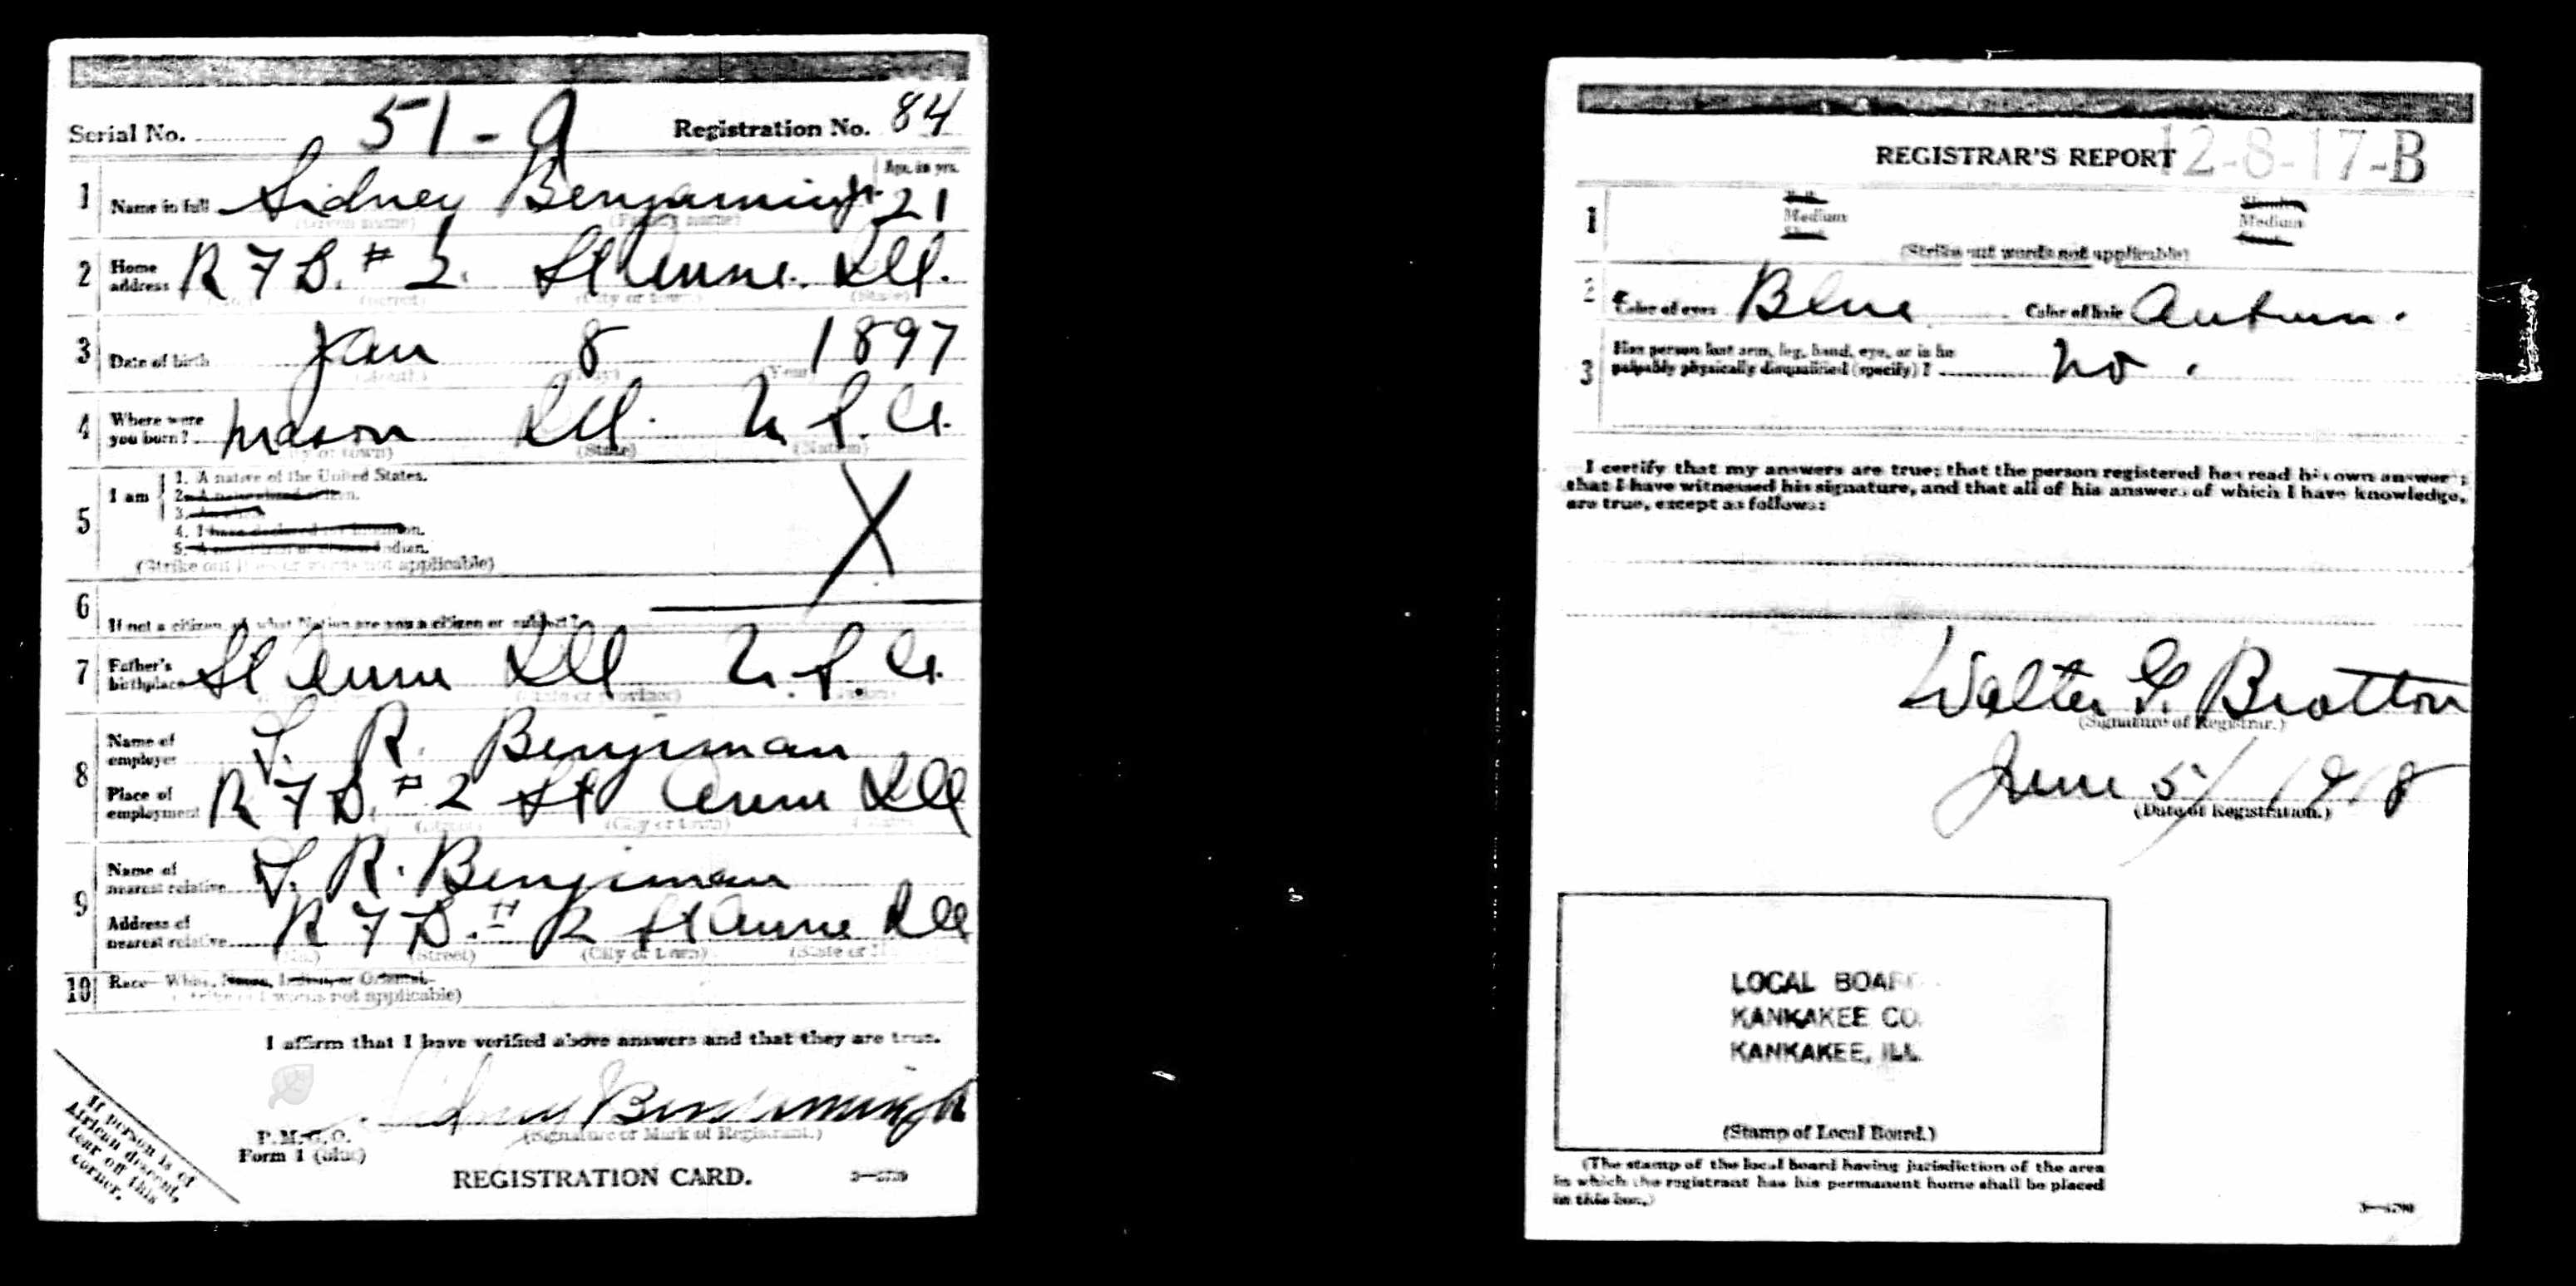 Serial No. 51-A Registration No. 84
1 Name in full Sidney Benjamin Jr. Age, in yrs. 21
(Given name) (Family name)
2 Home address R F D. # 2. St Anne. Ill.
(No.) (Street) (City or town) (State)
3 Date of birth Jan 8 1897
(Month) (Day) (Year)
4 Where were you born? Mason Ill. U. S. A.
(City or town) (State) (Nation)
5 I am
1. A native of the United States.
2. A naturalized citizen.
3. An alien.
4. I have declared my intention.
5. Indian.
(Strike out lines or words not applicable)
6 If not a citizen, of what Nation are you a citizen or subject?
7 Father's birthplace St Anne Ill U. S. A.
(State or province)
8 Name of employer S. R. Benjiman
Place of employment R F D. # 2 St Anne Ill
(Street) (City or town)
9 Name of nearest relative S. R. Benjiman
Address of nearest relative R F D. # 2 St Anne Ill
(No.) (Street) (City or town)
10 Race—White, Negro, Indian, or Oriental.
(Strike out words not applicable)
I affirm that I have verified above answers and that they are true.
Sidney Benjamin Jr
(Signature or Mark of Registrant.)
P. M. G. O.
Form 1 (blue)
REGISTRATION CARD.
If person is of
African descent,
tear off this
corner.
REGISTRAR'S REPORT 12-8-17-B
1 Tall Slender
Medium Medium
Short Stout
(Strike out words not applicable)
2 Color of eyes Blue Color of hair Auburn.
3 Has person lost arm, leg, hand, eye, or is he
palpably physically disqualified (specify)? No.
I certify that my answers are true; that the person registered has read his own answers;
that I have witnessed his signature, and that all of his answers of which I have knowledge,
are true, except as follows:
Walter G. Bratton
(Signature of Registrar.)
June 5/1918
(Date of Registration.)
LOCAL BOARD
KANKAKEE CO.
KANKAKEE, ILL.
(Stamp of Local Board.)
(The stamp of the local board having jurisdiction of the area
in which the registrant has his permanent home shall be placed
in this box.)